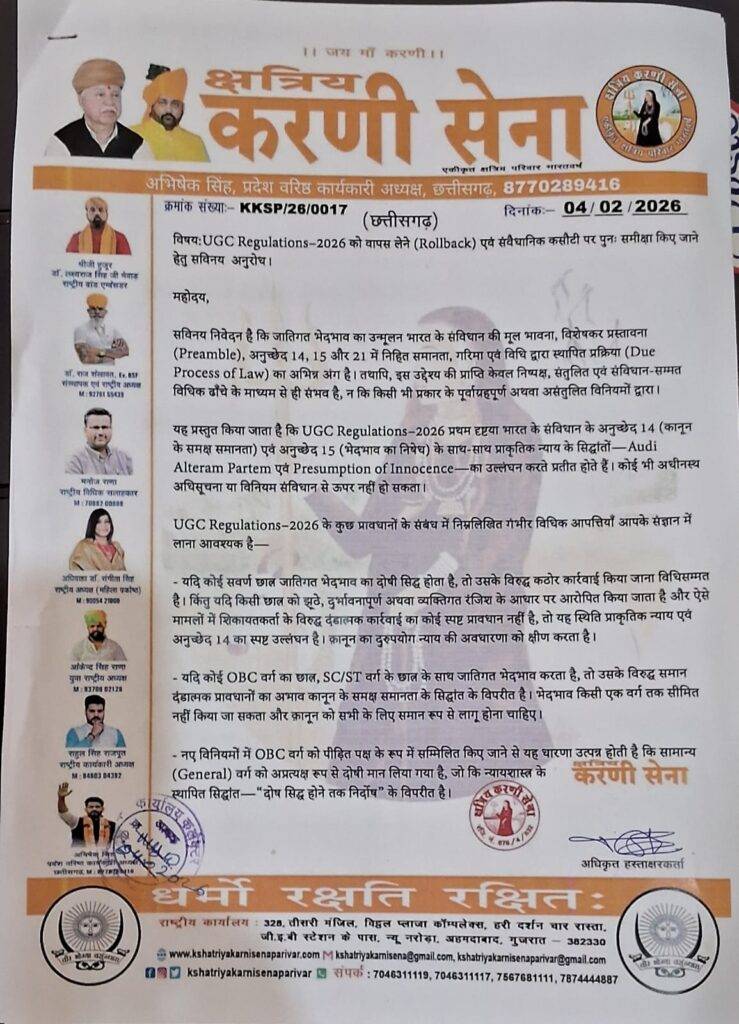 ।। जय माँ करणी।।
क्षत्रिय
करणी सेना
एकीकृत क्षत्रिय परिवार भारतवर्ष
क्षत्रिय करणी सेना
एकीकृत क्षत्रिय परिवार भारतवर्ष
अभिषेक सिंह, प्रदेश वरिष्ठ कार्यकारी अध्यक्ष, छत्तीसगढ़, 8770289416
क्रमांक संख्या:– KKSP/26/0017
(छत्तीसगढ़)
दिनांक:– 04/02/2026
विषय:UGC Regulations–2026 को वापस लेने (Rollback) एवं संवैधानिक कसौटी पर पुनः समीक्षा किए जाने
हेतु सविनय अनुरोध।
महोदय,
सविनय निवेदन है कि जातिगत भेदभाव का उन्मूलन भारत के संविधान की मूल भावना, विशेषकर प्रस्तावना
(Preamble), अनुच्छेद 14, 15 और 21 में निहित समानता, गरिमा एवं विधि द्वारा स्थापित प्रक्रिया (Due
Process of Law) का अभिन्न अंग है। तथापि, इस उद्देश्य की प्राप्ति केवल निष्पक्ष, संतुलित एवं संविधान-सम्मत
विधिक ढाँचे के माध्यम से ही संभव है, न कि किसी भी प्रकार के पूर्वाग्रहपूर्ण अथवा असंतुलित विनियमों द्वारा।
यह प्रस्तुत किया जाता है कि UGC Regulations–2026 प्रथम दृष्टया भारत के संविधान के अनुच्छेद 14 (कानून
के समक्ष समानता) एवं अनुच्छेद 15 (भेदभाव का निषेध) के साथ-साथ प्राकृतिक न्याय के सिद्धांतों—Audi
Alteram Partem एवं Presumption of Innocence—का उल्लंघन करते प्रतीत होते हैं। कोई भी अधीनस्थ
अधिसूचना या विनियम संविधान से ऊपर नहीं हो सकता।
UGC Regulations–2026 के कुछ प्रावधानों के संबंध में निम्नलिखित गंभीर विधिक आपत्तियाँ आपके संज्ञान में
लाना आवश्यक है—
- यदि कोई सवर्ण छात्र जातिगत भेदभाव का दोषी सिद्ध होता है, तो उसके विरुद्ध कठोर कार्रवाई किया जाना विधिसम्मत
है। किंतु यदि किसी छात्र को झूठे, दुर्भावनापूर्ण अथवा व्यक्तिगत रंजिश के आधार पर आरोपित किया जाता है और ऐसे
मामलों में शिकायतकर्ता के विरुद्ध दंडात्मक कार्रवाई का कोई स्पष्ट प्रावधान नहीं है, तो यह स्थिति प्राकृतिक न्याय एवं
अनुच्छेद 14 का स्पष्ट उल्लंघन है। क़ानून का दुरुपयोग न्याय की अवधारणा को क्षीण करता है।
- यदि कोई OBC वर्ग का छात्र, SC/ST वर्ग के छात्र के साथ जातिगत भेदभाव करता है, तो उसके विरुद्ध समान
दंडात्मक प्रावधानों का अभाव कानून के समक्ष समानता के सिद्धांत के विपरीत है। भेदभाव किसी एक वर्ग तक सीमित
नहीं किया जा सकता और क़ानून को सभी के लिए समान रूप से लागू होना चाहिए।
- नए विनियमों में OBC वर्ग को पीड़ित पक्ष के रूप में सम्मिलित किए जाने से यह धारणा उत्पन्न होती है कि सामान्य
(General) वर्ग को अप्रत्यक्ष रूप से दोषी मान लिया गया है, जो कि न्यायशास्त्र के
स्थापित सिद्धांत—“दोष सिद्ध होने तक निर्दोष” के विपरीत है।
क्षत्रिय
करणी सेना
अधिकृत हस्ताक्षरकर्ता
श्रीजी हुजूर
डॉ. लक्ष्यराज सिंह जी मेवाड़
राष्ट्रीय ब्रांड एम्बेसडर
डॉ. राज शेखावत, Ex. BSF
संस्थापक एवं राष्ट्रीय अध्यक्ष
मनोज राणा
राष्ट्रीय विधिक सलाहकार
अधिवक्ता डॉ. संगीता सिंह
राष्ट्रीय अध्यक्ष (महिला प्रकोष्ठ)
युवा राष्ट्रीय अध्यक्ष
राहुल सिंह राजपूत
राष्ट्रीय कार्यकारी अध्यक्ष
प्रदेश वरिष्ठ कार्यकारी अध्यक्ष
धर्मो रक्षति रक्षित:
राष्ट्रीय कार्यालय : 328, तीसरी मंजिल, विट्ठल प्लाजा कॉम्पलेक्स, हरी दर्शन चार रास्ता,
जी.इ.बी स्टेशन के पास, न्यू नरोड़ा, अहमदाबाद, गुजरात – 382330
www.kshatriyakarnisenaparivar.com kshatriyakarnisena@gmail.com, kshatriyakarnisenaparivar@gmail.com
kshatriyakarnisenaparivar संपर्क : 7046311119, 7046311117, 7567681111, 7874444887